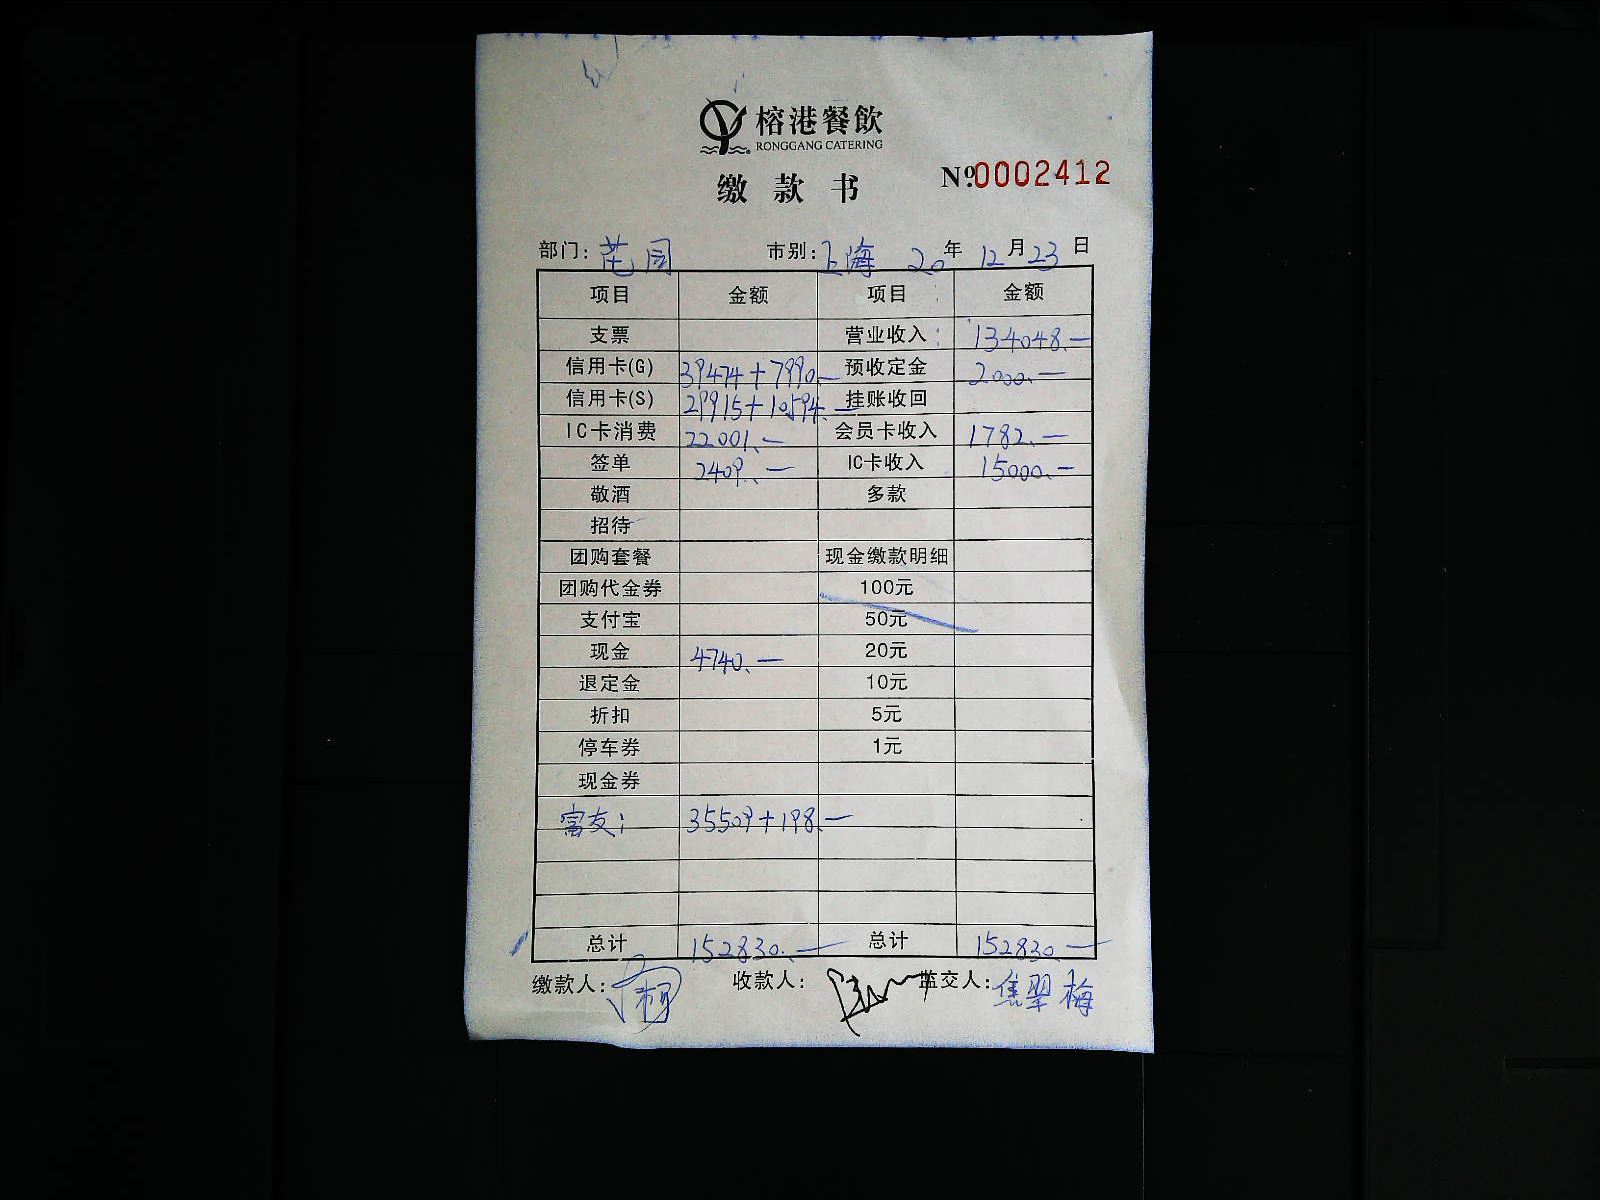 榕港餐飲
RONGGANG CATERING
缴款书
№0002412
部门: 花园 市别: 上海 20年12月23日
项目 金额 项目 金额
支票 营业收入: 134048.—
信用卡(G) 39474+7990.— 预收定金 2000.—
信用卡(S) 29915+10594.— 挂账收回
IC卡消费 22001.— 会员卡收入 1782.—
签单 2409.— IC卡收入 15000.—
敬酒 多款
招待
团购套餐 现金缴款明细
团购代金券 100元
支付宝 50元
现金 4740.— 20元
退定金 10元
折扣 5元
停车券 1元
现金券
富友: 35509+198.—
总计 152830.— 总计 152830.—
缴款人: 收款人: 监交人: 焦翠梅